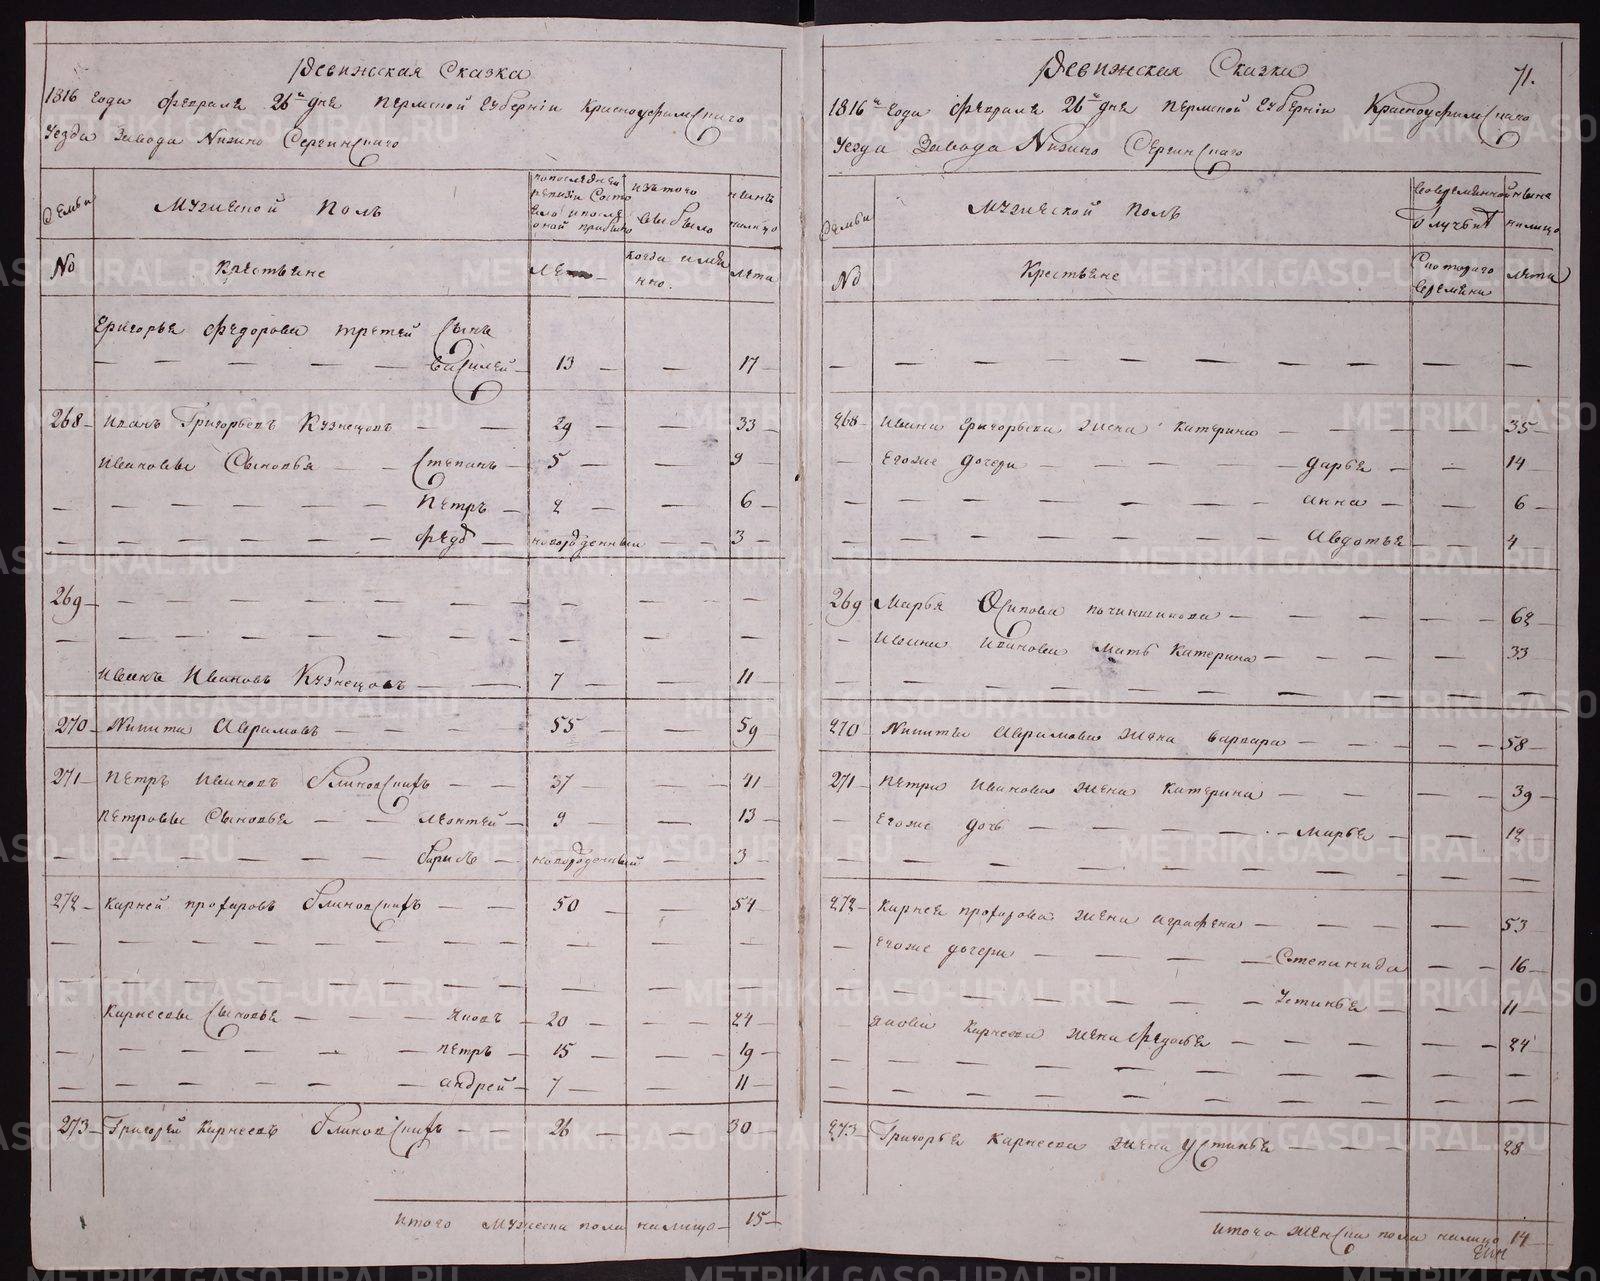 Ревижская Сказка
1816 года февраля 26го дня Пермской губернии Красноуфимскаго
уезда Завода Нижно Сергинскаго
Семьи
Мужеской полъ
попоследней ревизии состояло и после оной прибыло
изъ того выбыло
нынѣ налицо
№
Крестьяне
лета
когда имянно
лета
Григорья Федорова третей Сынъ
Василей 13 17
268 Иванъ Григорьевъ Кузнецовъ 29 33
Ивановы Сыновья Степанъ 5 9
Петръ 2 6
Федо новорожденный 3
269
Иванъ Ивановъ Кузнецовъ 7 11
270 Никита Аврамовъ 55 59
271 Петръ Ивановъ Блиновскихъ 37 41
Петровы Сыновья Леонтей 9 13
Борисъ новорожденный 3
272 Карней Прохоровъ Блиновскихъ 50 54
Карнеевы Сыновья Яковъ 20 24
Петръ 15 19
Андрей 7 11
273 Григорей Карнеевъ Блиновскихъ 26 30
Итого мужеска пола налицо 15
Ревижская Сказка 71.
1816го года февраля 26го дня Пермской губернии Красноуфимскаго
уезда Завода Нижно Сергинскаго
Семьи
Мужеской полъ
во временной отлучке
ныне налицо
№
Крестьяне
С котораго времени
лета
268 Ивана Григорьева жена Катерина 35
Егоже дочери Дарья 14
Анна 6
Авдотья 4
269 Марья Осипова Починщикова 62
Ивана Иванова мать Катерина 33
270 Никиты Аврамова жена Варвара 58
271 Петра Иванова жена Катерина 39
Егоже дочь Марья 12
272 Карнея Прохорова жена Аграфена 53
Егоже дочери Степанида 16
Устинья 11
Якова Карнеева жена Федосья 24
273 Григорья Карнеева жена Устинья 28
Итого женска пола налицо 14
METRIKI.GASO-URAL.RU